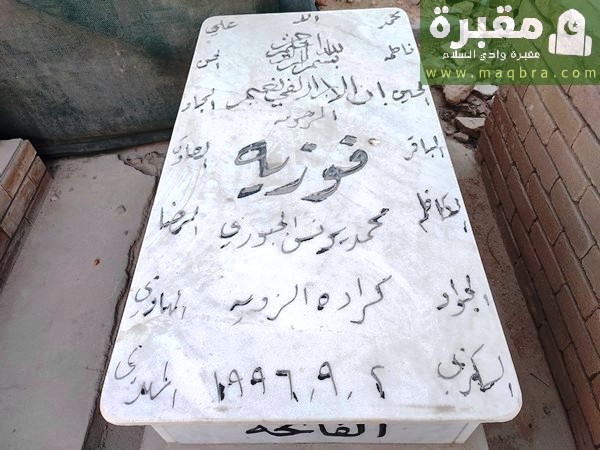 مقبرة
مقبرة وادي السلام
www.maqbra.com
محمد
الله
علي
فاطمه
بسم الله الرحمن الرحيم
الحسن
الحسين
ان الابرار لفي نعيم
السجاد
المرحومه
الباقر
فوزيه
الصادق
الكاظم
محمد يونس الجبوري
الرضا
الجواد
كراده الزويه
الهادي
العسكري
١٩٩٦.٩.٢
المهدي
الفاتحه